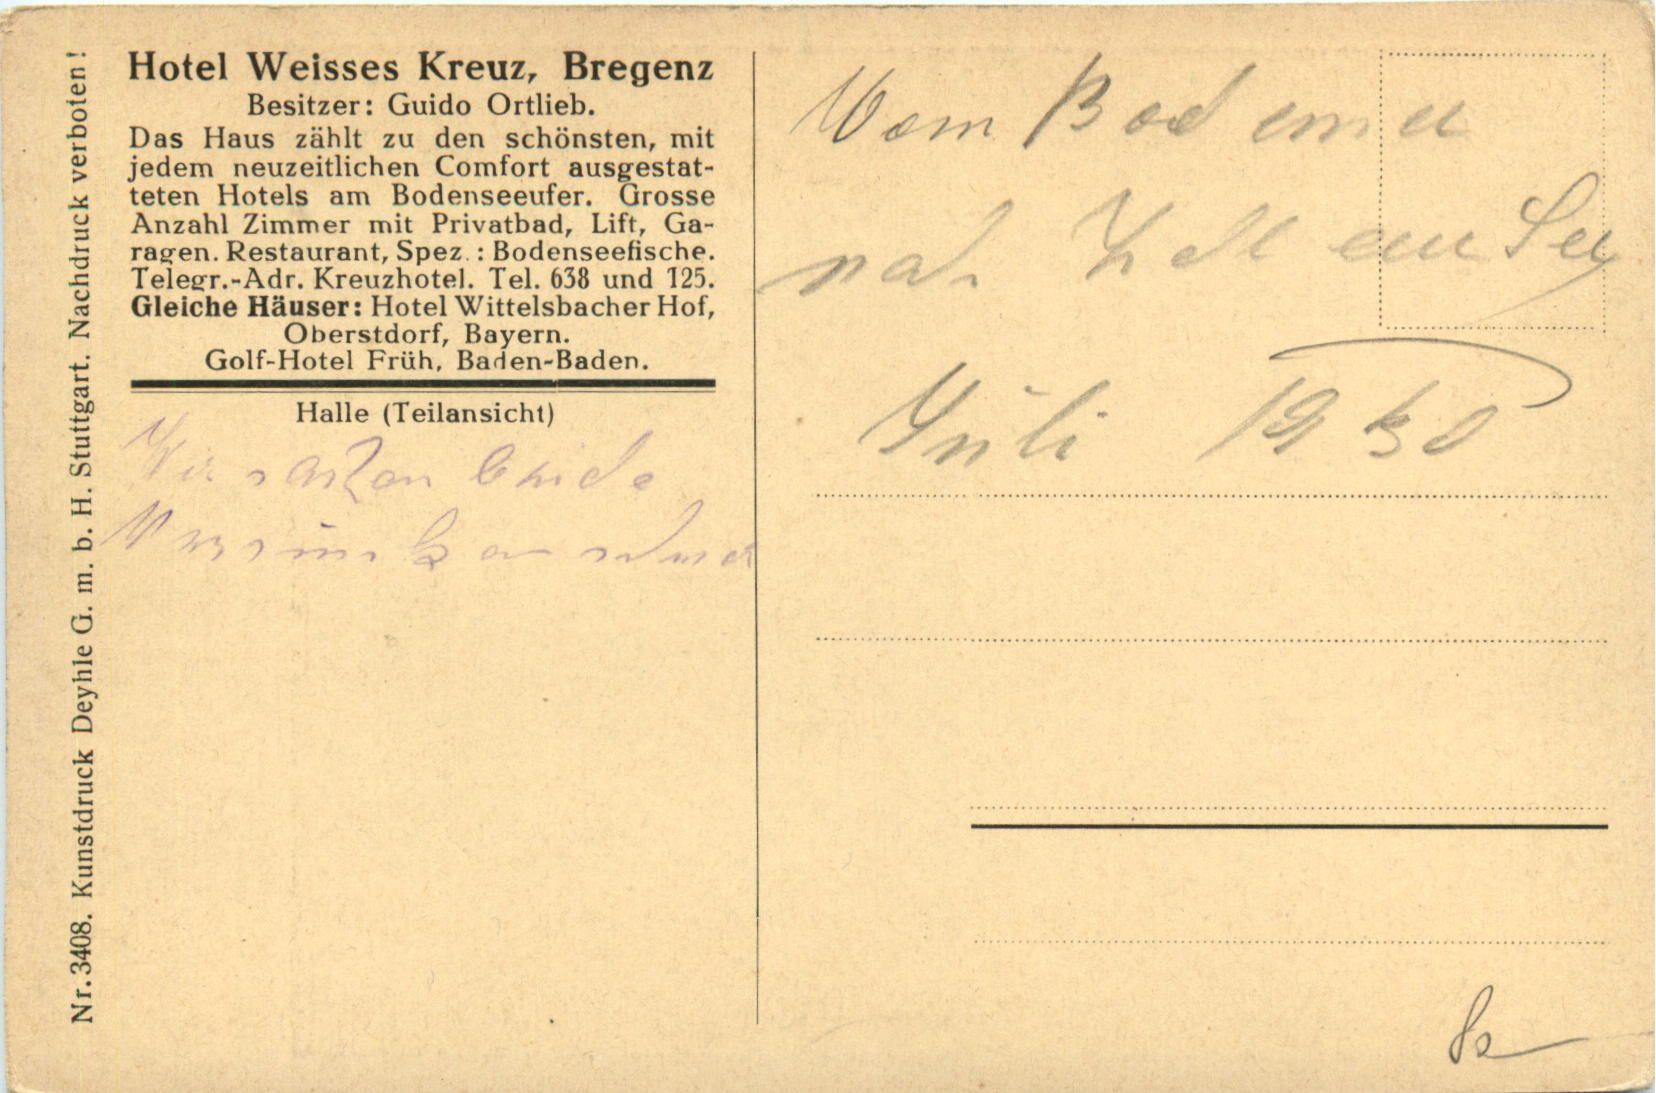 Hotel Weisses Kreuz, Bregenz
Besitzer: Guido Ortlieb.
Das Haus zählt zu den schönsten, mit
jedem neuzeitlichen Comfort ausgestat-
teten Hotels am Bodenseeufer. Grosse
Anzahl Zimmer mit Privatbad, Lift, Ga-
ragen. Restaurant, Spez.: Bodenseefische.
Telegr.-Adr. Kreuzhotel. Tel. 638 und 125.
Gleiche Häuser: Hotel Wittelsbacher Hof,
Oberstdorf, Bayern.
Golf-Hotel Früh, Baden-Baden.
Halle (Teilansicht)
Wir
Nr. 3408. Kunstdruck Deyhle G. m. b. H. Stuttgart. Nachdruck verboten!
Vom
Zell am See
Juli 1930